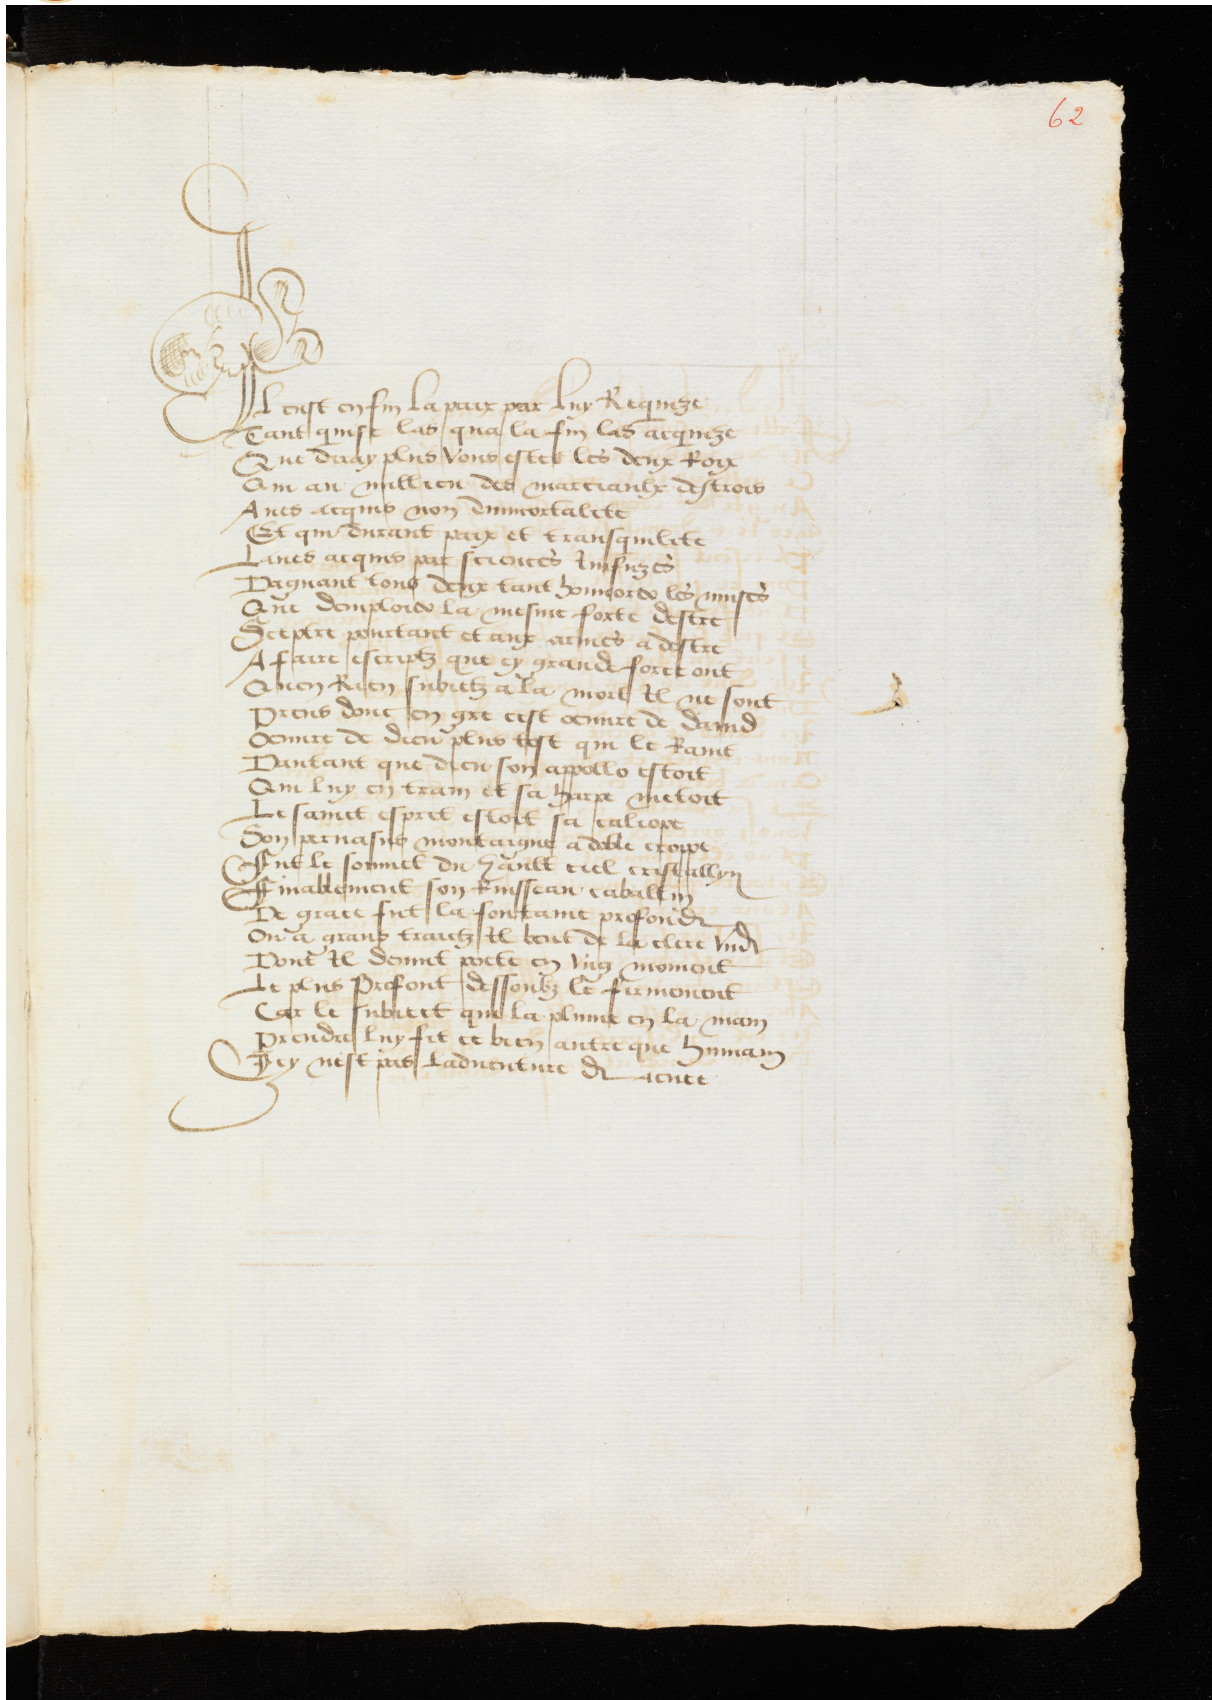 62
Il eust en fin la paix par luy Requize
Tant quise las qua la fin las acquize
Que diray plus vous estes les deux Roix
Qui au millieu des marciaulx destrois
Aues acquis non dimortalite
Et qui durant paix et transquilite
Laues acquis par sciences Infuzes
Dagnant tous deux tant honnorer les muses
Que demploier la mesme forte destre
Sceptre pourtant et aux armes a destre
A faire escriptz que cy grande force ont
Quen Rien subietz a la mort Il ne sont
Prens donc en gre cest oeuure de dauid
Oeuure de dieu plus tost qui le Rauit
Dautant que dieu son appollo estoit
Qui luy en train et sa harpe metoit
Le sainct espret estoit sa caliope
Son pernasus montaigne a doble crope
Fut le sommet du hault ciel cristallyn
Finablement son Ruisseau caballin
De grace fut la fontaine profonde
Ou a grans traictz Il beut de la clere vnde
Dont Il deuint poete en vng moment
Le plus Profont dessoubz le firmement
Car le subiect qui la plume en la main
Prendre luy fit ce bien autre que humain
Icy nest pas laduenture de enee